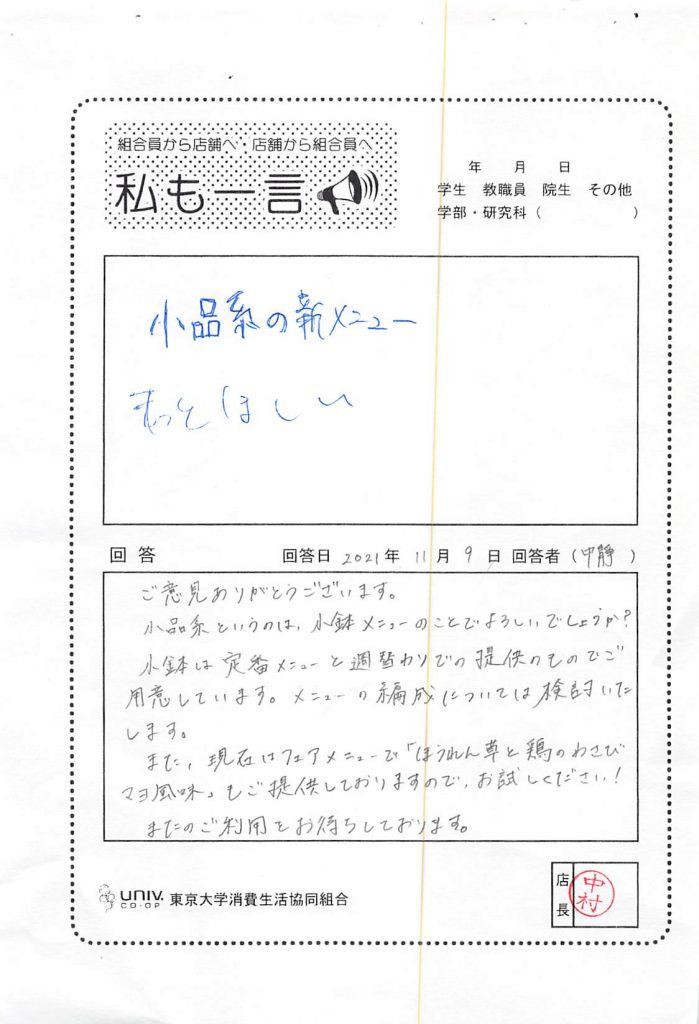 組合員から店舗へ・店舗から組合員へ
私も一言
年 月 日
学生 教職員 院生 その他
学部・研究科( )
小品系の新メニュー
もっとほしい
回答 回答日 2021年 11月 9日 回答者(中静)
ご意見ありがとうございます。
小品系というのは、小鉢メニューのことでよろしいでしょうか?
小鉢は定番メニューと週替わりでの提供のものでご
用意しています。メニューの編成については検討いた
します。
また、現在はフェアメニューで「ほうれん草と鶏のわさび
マヨ風味」もご提供しておりますので、お試しください!
またのご利用をお待ちしております。
UNIV.
CO-OP
東京大学消費生活協同組合
店長
中村